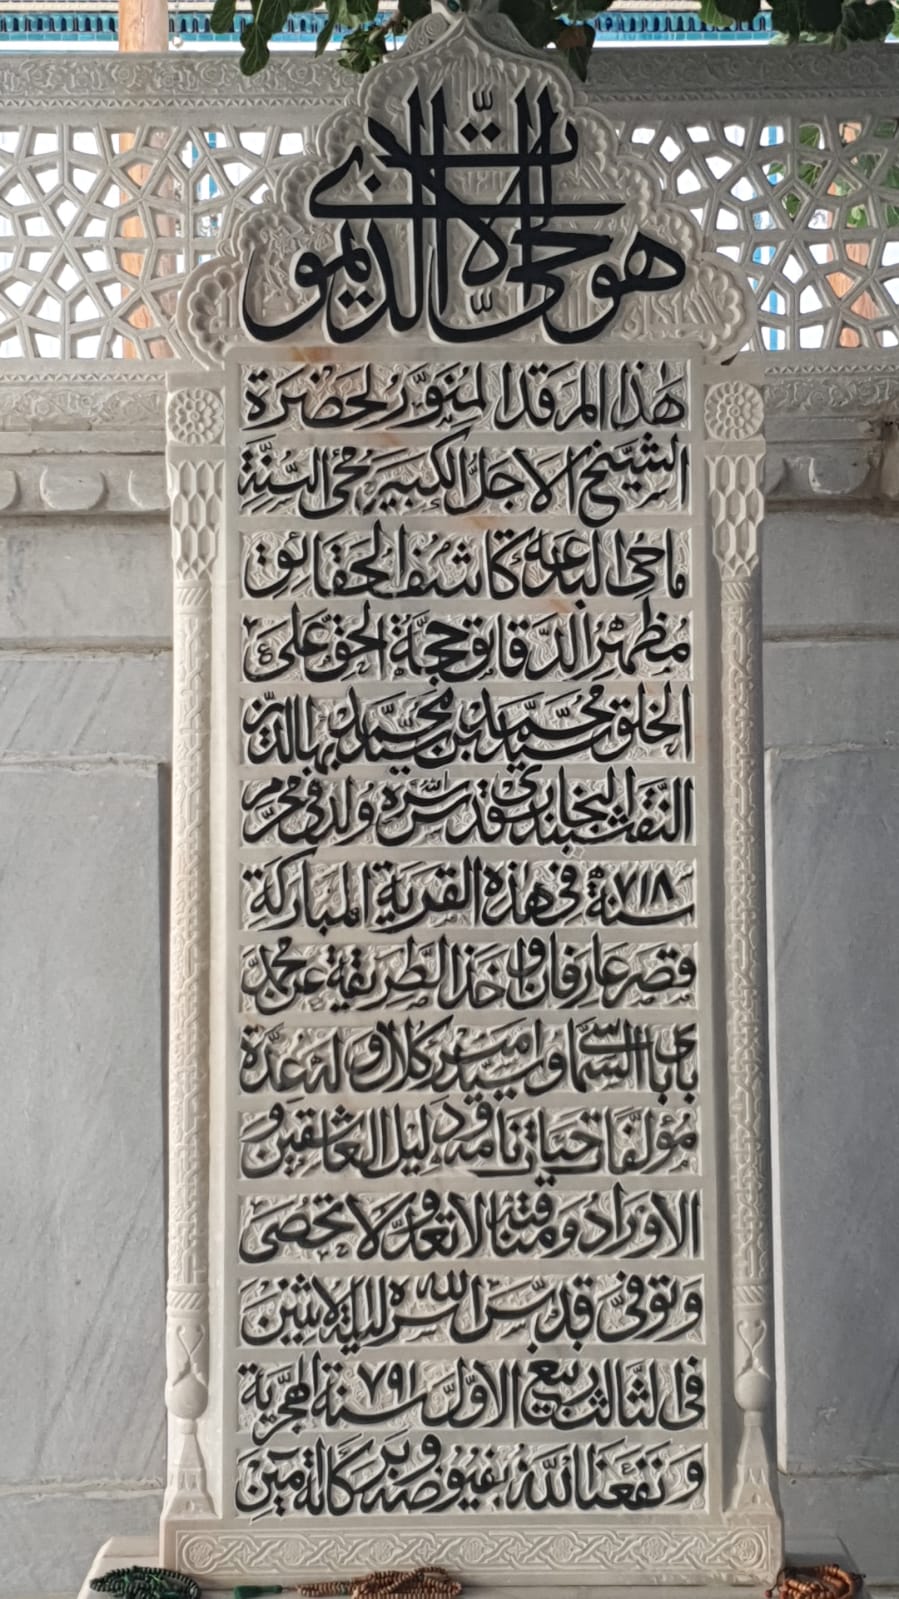 هو الحي الباقي الذي لا يموت
هٰذا المرقد المنوَّر لحضرة
الشيخ الاجلّ الكبير محي السنّة
ماحي البدعة كاشف الحقائق
مُظهر الدّقايق حجّة الحق على
الخلق سيد محمّد بن سيد محمّد بهاالدّين
النّقشبندي البخاري قدّس سرّه ولد في محرم
سنة ٧١٨ في هٰذه القرية المباركة
قصر عارفان واخذ الطّريقة عن محمّد
باباي السّماسي وسيد امير كلال وله عدّة
مؤلّفات حيات نامه ودليل العاشقين و
الاوراد ومناقبه لا تعدّ ولا تحصى
وتوفّى قدّس الله سرّه ليلة الاثنين
في الثالث ربيع الاوّل سنة ٧٩١ الهجرية
ونفعنا الله بفيوضه وبركاته آمين